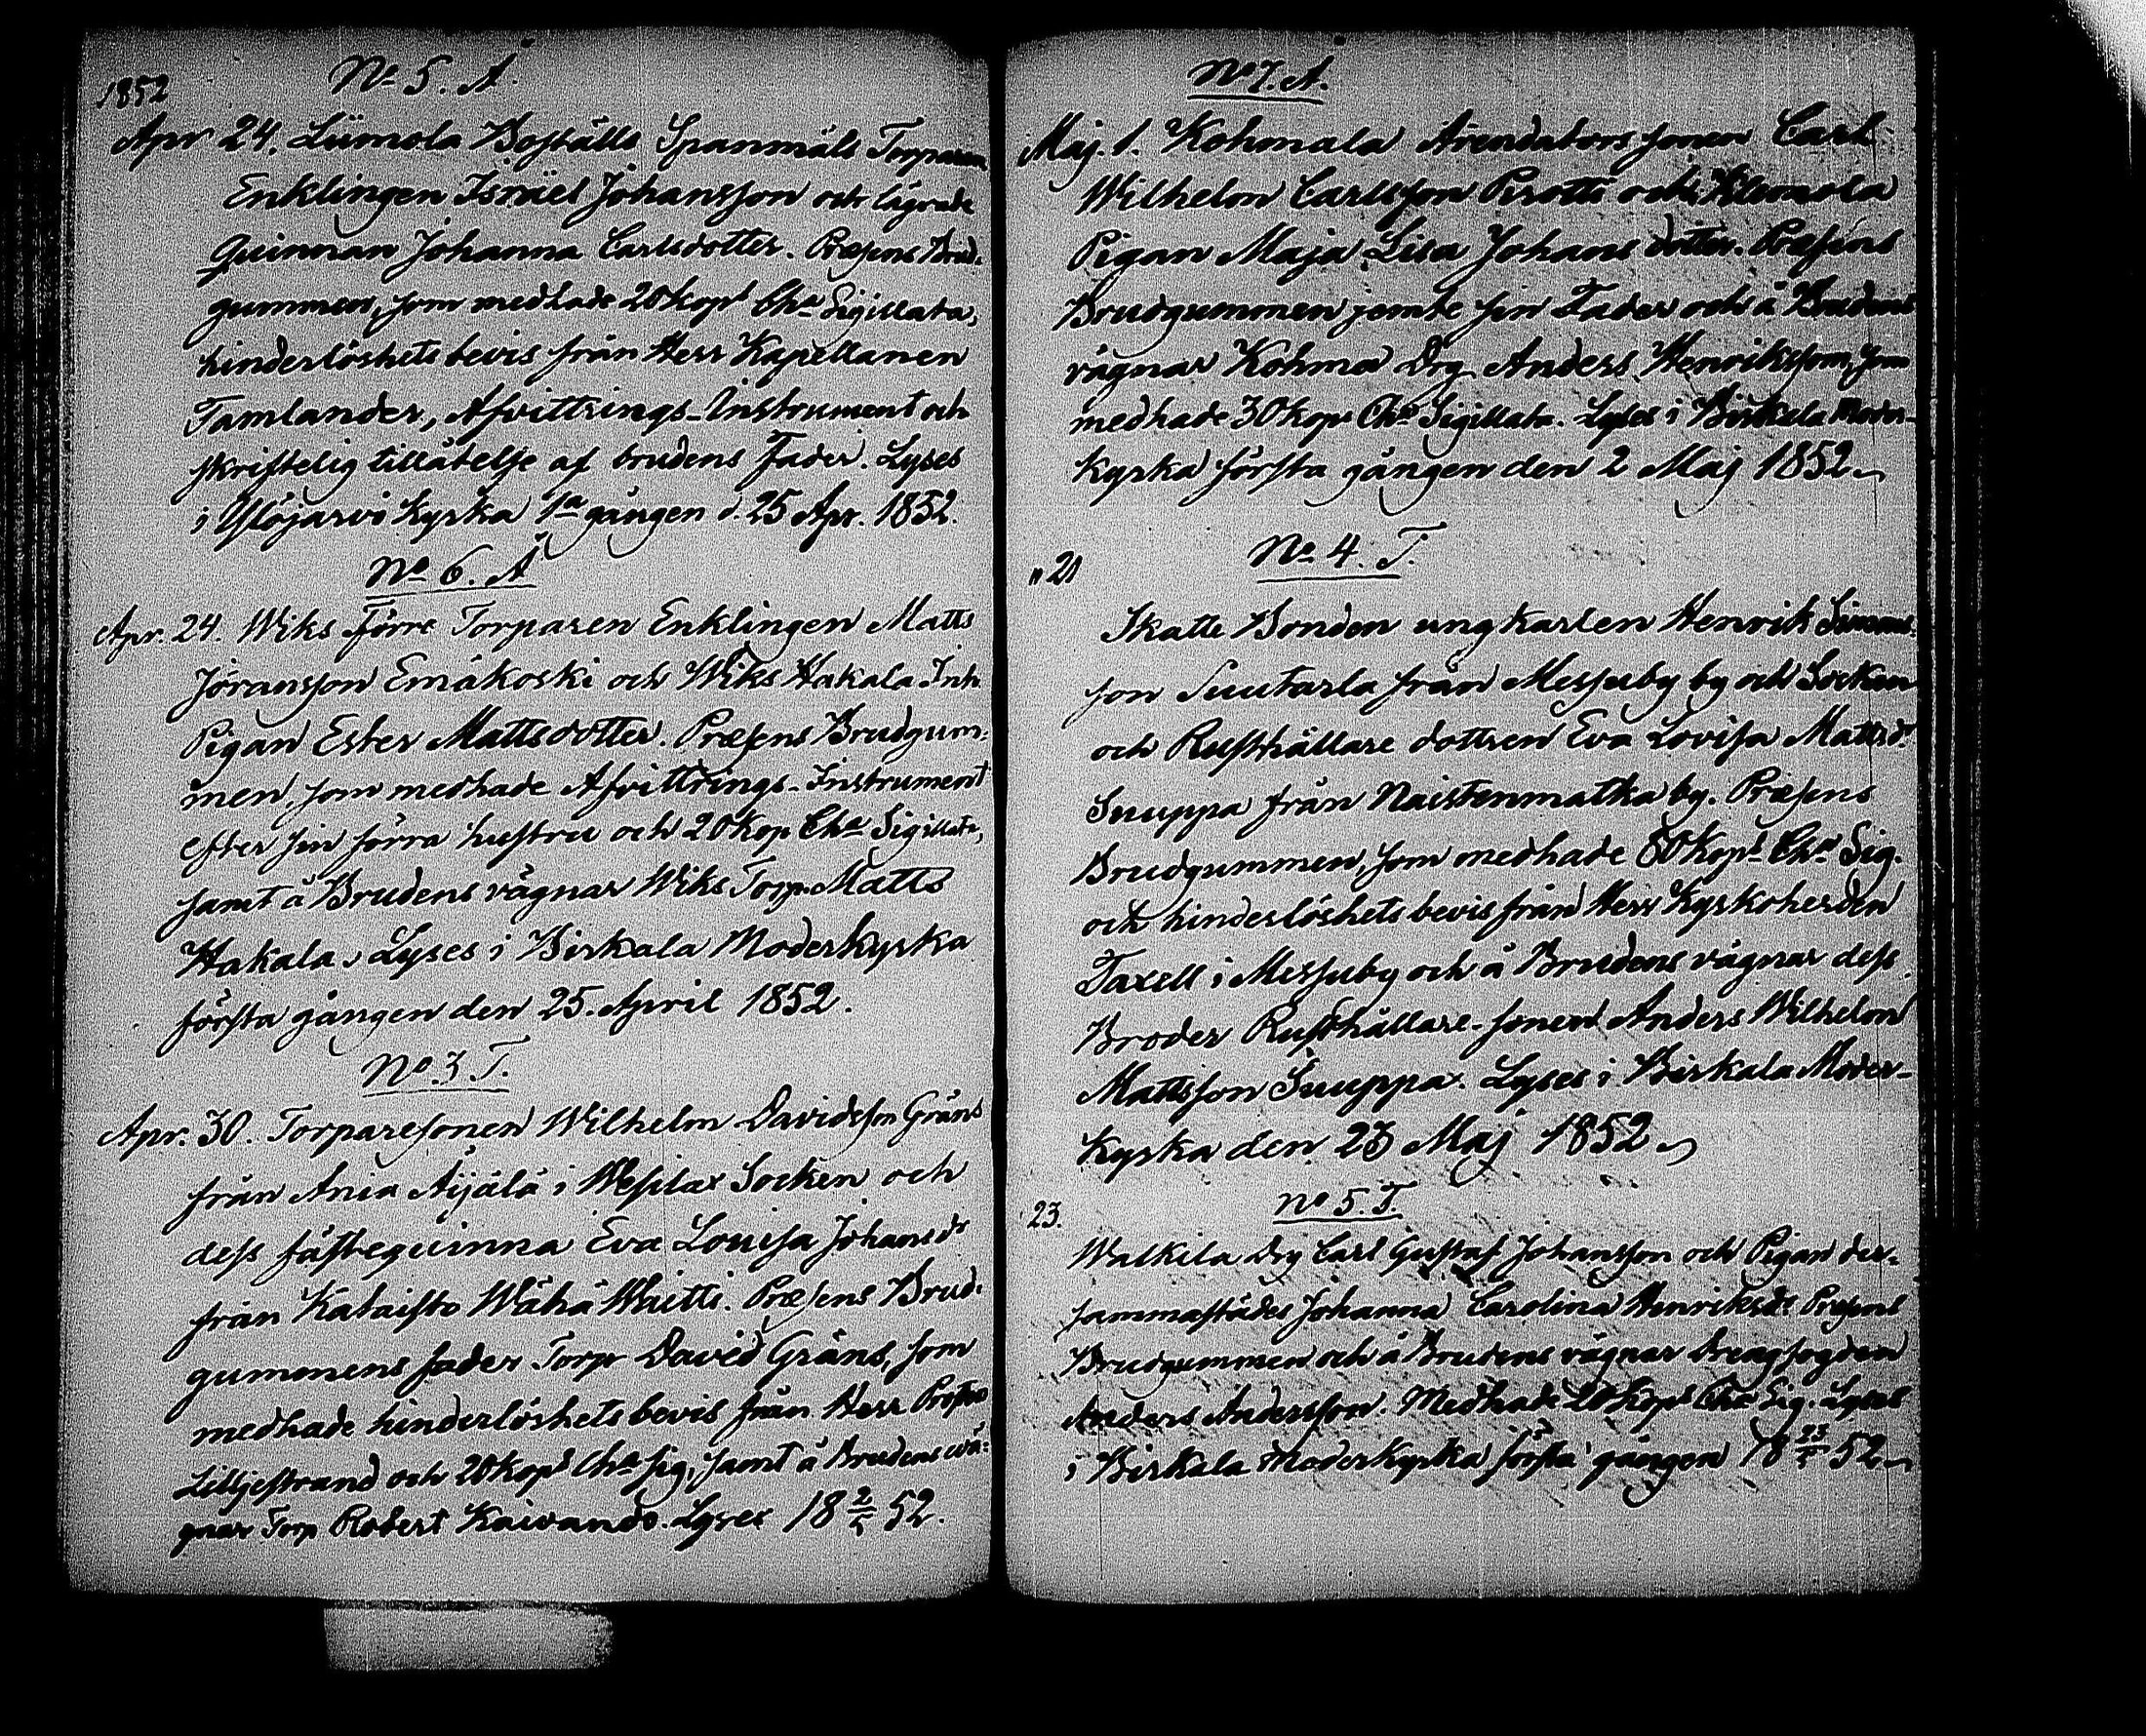 1852
No 5. A.
Apr 24. Liimola Boställs Spanmåls Torparen
Enklingen Isräel Johansson och lägrade
Quinnan Johanna Carlsdotter. Præsens Brud-
gummen, som medhade 20 kopr Cha Sigillata,
hinderlöshets bevis från Herr Kapellanen
Tamlander, Afvittrings-Instrument och
skriftelig tillåtelse af brudens Fader. Lyses
i Ylöjarvi Kyrka 1a gången d. 25 Apr. 1852.
No 6. A
Apr. 24. Wiks Förre Torparen Enklingen Matts
Jöransson Emäkoski och Wiks Hakala Inh.
Pigan Ester Mattsdotter. Præsens Brudgum-
men, som medhade Afvittrings-Instrument
efter sin förra hustru och 20 kop Cha Sigillata,
samt å Brudens vägnar Wiks Torp. Matts
Hakala. Lyses i Birkala Moderkyrka
första gången den 25. April 1852.
No. 3 T.
Apr. 30. Torparesonen Wilhelm Davidsson Gräns
från Ania Äijälä i Wesilax Socken och
dess fästeqvinna Eva Lovisa Johansdr
från Kataisto Wähä Waitti. Præsens Brud-
gummens fader Torp David Gräns, som
medhade hinderlöshets bevis från Herr Prosten
Lilljestrand och 20 kopr Cha sig, samt å Brudens vä-
gnar Torp Robert Kaivando. Lyses 18 2/5 52.
No 7. A.
Maj. 1. Kohmala Arendators sonen Carl
Wilhelm Carlsson Pirotti och Klemola
Pigan Maja Lisa Johans dotter. Præsens
Brudgummen jemte sin Fader och å Brudens
vägnar Kohma Drg Anders Henriksson, som
medhade 30 kopr Cha Sigillata. Lyses i Birkala Moder-
Kyrka första gången den 2 Maj 1852
No 4. T.
" 21
Skatte Bonden ungkarlen Henrik Simons-
son Suutarla från Messuby by och Socken
och Rusthållare dottren Eva Lovisa Mattsdr
Suuppa från Naistenmatka by. Præsens
Brudgummen, som medhade 80 kopr Cha Sig.
och hinderlöshets bevis från Herr Kyrkoherden
Taxell i Messuby och å Brudens vägnar dess
Broder Rusthållare-sonen Anders Wilhelm
Mattsson Suuppa. Lyses i Birkala Moder-
Kyrka den 23 Maj 1852
No 5. T.
23.
Walkila Drg Carl Gustaf Johansson och Pigan der-
sammastädes Johanna Carolina Henriksdr Præsens
Brudgummen och å Brudens vägnar Drengfogden
Anders Andersson. Medhade 20 Kopr Cha Sig. Lyses
i Birkala Moderkyrka första gången 18 23/5 52